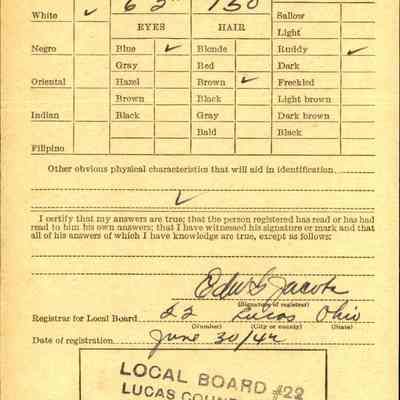 White ✓ 6 2" 150 Sallow
EYES HAIR Light
Negro Blue ✓ Blonde Ruddy ✓
Gray Red Dark
Oriental Hazel Brown ✓ Freckled
Brown Black Light brown
Indian Black Gray Dark brown
Bald Black
Filipino
Other obvious physical characteristics that will aid in identification
✓
I certify that my answers are true; that the person registered has read or has had
read to him his own answers; that I have witnessed his signature or mark and that
all of his answers of which I have knowledge are true, except as follows:
Edw G Jacobs
(Signature of registrar)
Registrar for Local Board 22 Lucas Ohio
(Number) (City or county) (State)
Date of registration June 30/42
LOCAL BOARD #22
LUCAS COUN